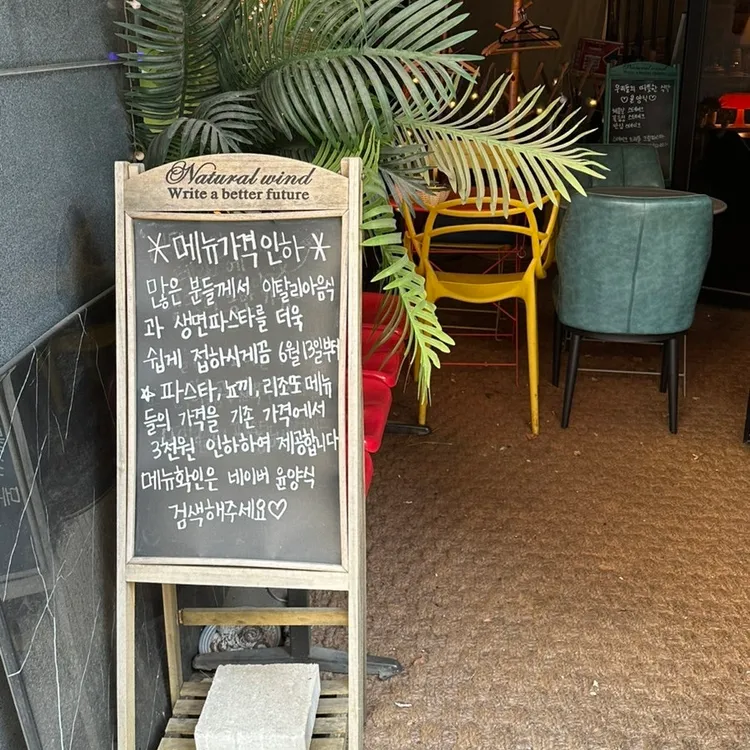 Natural wind
Write a better future
* 메뉴가격인하 *
많은 분들께서 이탈리아음식
과 생면파스타를 더욱
쉽게 접하시게끔 6월13일부터
* 파스타, 뇨끼, 리소또 메뉴
들의 가격을 기존 가격에서
3천원 인하하여 제공합니다
메뉴확인은 네이버 윤양식
검색해주세요♡
우리동네 따뜻한 식당
♡윤양식♡